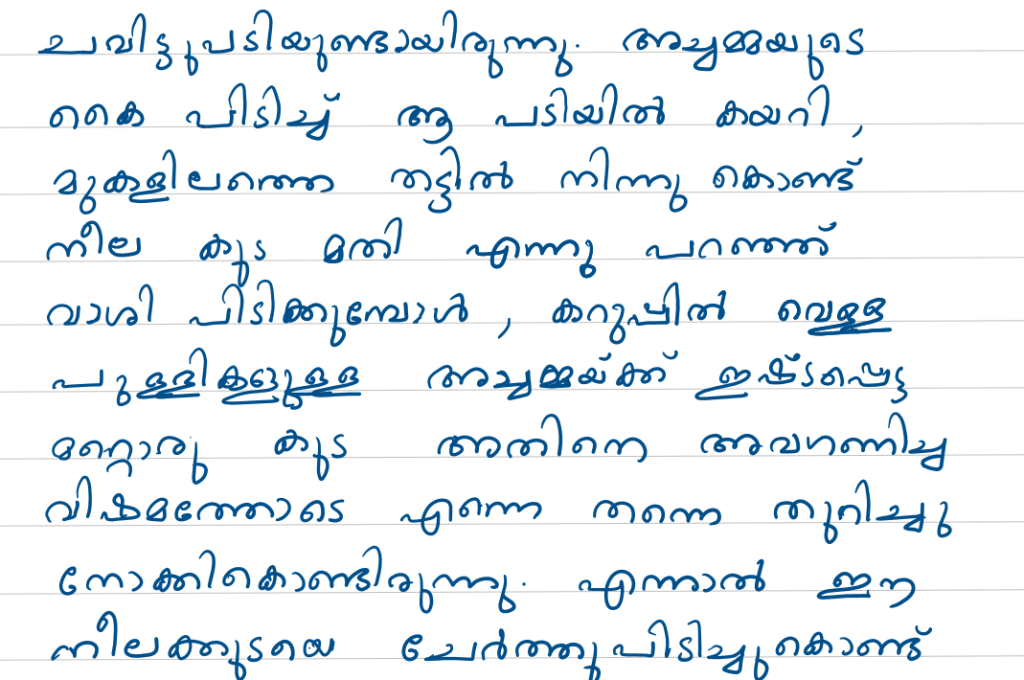 ചവിട്ടുപടിയുണ്ടായിരുന്നു. അച്ചമ്മയുടെ
കൈ പിടിച്ച് ആ പടിയിൽ കയറി,
മുകളിലത്തെ തട്ടിൽ നിന്നു കൊണ്ട്
നീല കുട മതി എന്നു പറഞ്ഞ്
വാശി പിടിക്കുമ്പോൾ, കറുപ്പിൽ വെള്ള
പുള്ളികളുള്ള അച്ചമ്മയ്ക്ക് ഇഷ്ടപ്പെട്ട
മറ്റൊരു കുട അതിനെ അവഗണിച്ച
വിഷമത്തോടെ എന്നെ തന്നെ തുറിച്ചു
നോക്കികൊണ്ടിരുന്നു. എന്നാൽ ഈ
നീലക്കുടയെ ചേർത്തുപിടിച്ചുകൊണ്ട്